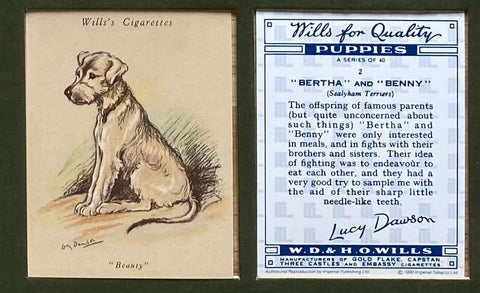 Wills's Cigarettes
Lucy Dawson
"Beauty"
Wills for Quality
PUPPIES
A SERIES OF 40
2
"BERTHA" AND "BENNY"
(Sealyham Terriers)
The offspring of famous parents
(but quite unconcerned about
such things) "Bertha" and
"Benny" were only interested
in meals, and in fights with their
brothers and sisters. Their idea
of fighting was to endeavour to
eat each other, and they had a
very good try to sample me with
the aid of their sharp little
needle-like teeth.
Lucy Dawson
W.D.& H.O.WILLS
MANUFACTURERS OF GOLD FLAKE, CAPSTAN,
THREE CASTLES AND EMBASSY CIGARETTES
Authorized Reproduction by Imperial Publishing Ltd
© 1990 Imperial Tobacco Ltd